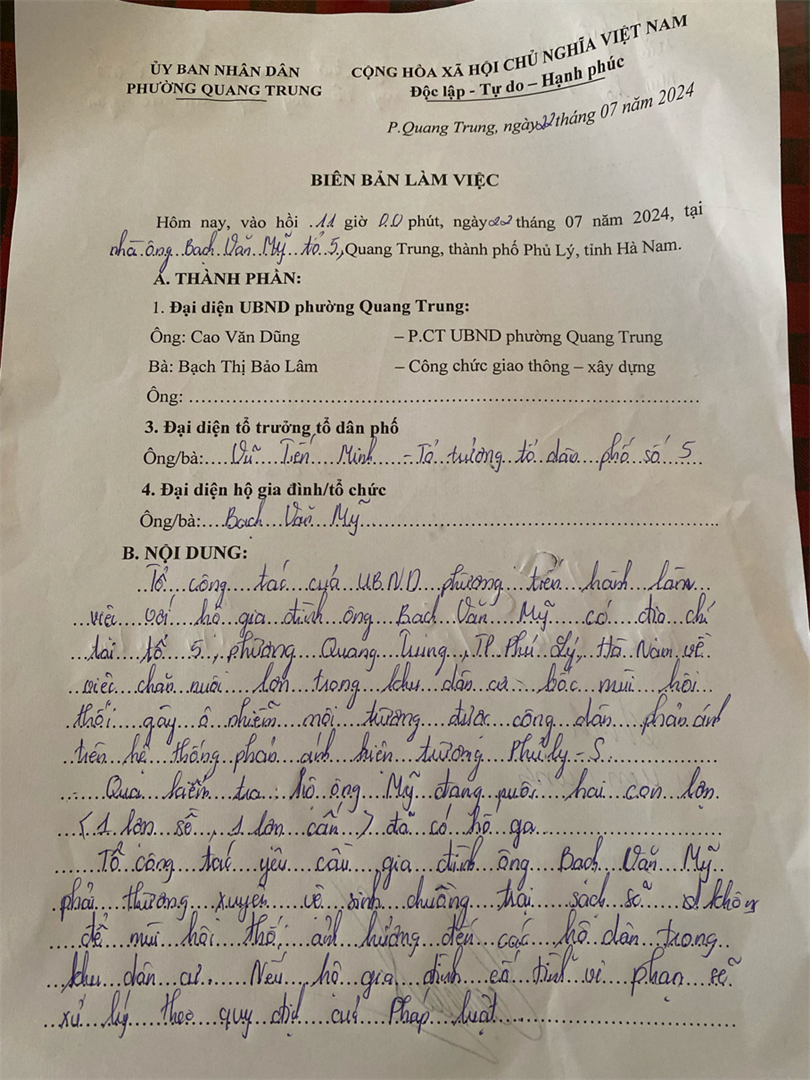 ỦY BAN NHÂN DÂN
PHƯỜNG QUANG TRUNG
CỘNG HÒA XÃ HỘI CHỦ NGHĨA VIỆT NAM
Độc lập - Tự do – Hạnh phúc
P.Quang Trung, ngày 22 tháng 07 năm 2024
BIÊN BẢN LÀM VIỆC
Hôm nay, vào hồi .11 giờ 00 phút, ngày 22 tháng 07 năm 2024, tại
nhà ông Bạch Văn Mỹ tổ 5, Quang Trung, thành phố Phủ Lý, tỉnh Hà Nam.
A. THÀNH PHẦN:
1. Đại diện UBND phường Quang Trung:
Ông: Cao Văn Dũng – P.CT UBND phường Quang Trung
Bà: Bạch Thị Bảo Lâm – Công chức giao thông – xây dựng
Ông: ........
3. Đại diện tổ trưởng tổ dân phố
Ông/bà: Vũ Tiến Minh - Tổ trưởng tổ dân phố số 5
4. Đại diện hộ gia đình/tổ chức
Ông/bà: Bạch Văn Mỹ
B. NỘI DUNG:
Tổ công tác của UBND phường tiến hành làm
việc với hộ gia đình ông Bạch Văn Mỹ có địa chỉ
tại tổ 5, phường Quang Trung, TP Phủ Lý, Hà Nam về
việc chăn nuôi lợn trong khu dân cư bốc mùi hôi
thối gây ô nhiễm môi trường được công dân phản ánh
trên hệ thống phản ánh hiện trường Phủ Lý - S.
Qua kiểm tra: hộ ông Mỹ đang nuôi hai con lợn
(1 lợn sề, 1 lợn cấn) đã có hố ga
Tổ công tác yêu cầu gia đình ông Bạch Văn Mỹ
phải thường xuyên vệ sinh chuồng trại sạch sẽ không
để mùi hôi thối ảnh hưởng đến các hộ dân trong
khu dân cư. Nếu hộ gia đình cố tình vi phạm sẽ
xử lý theo quy định của Pháp luật